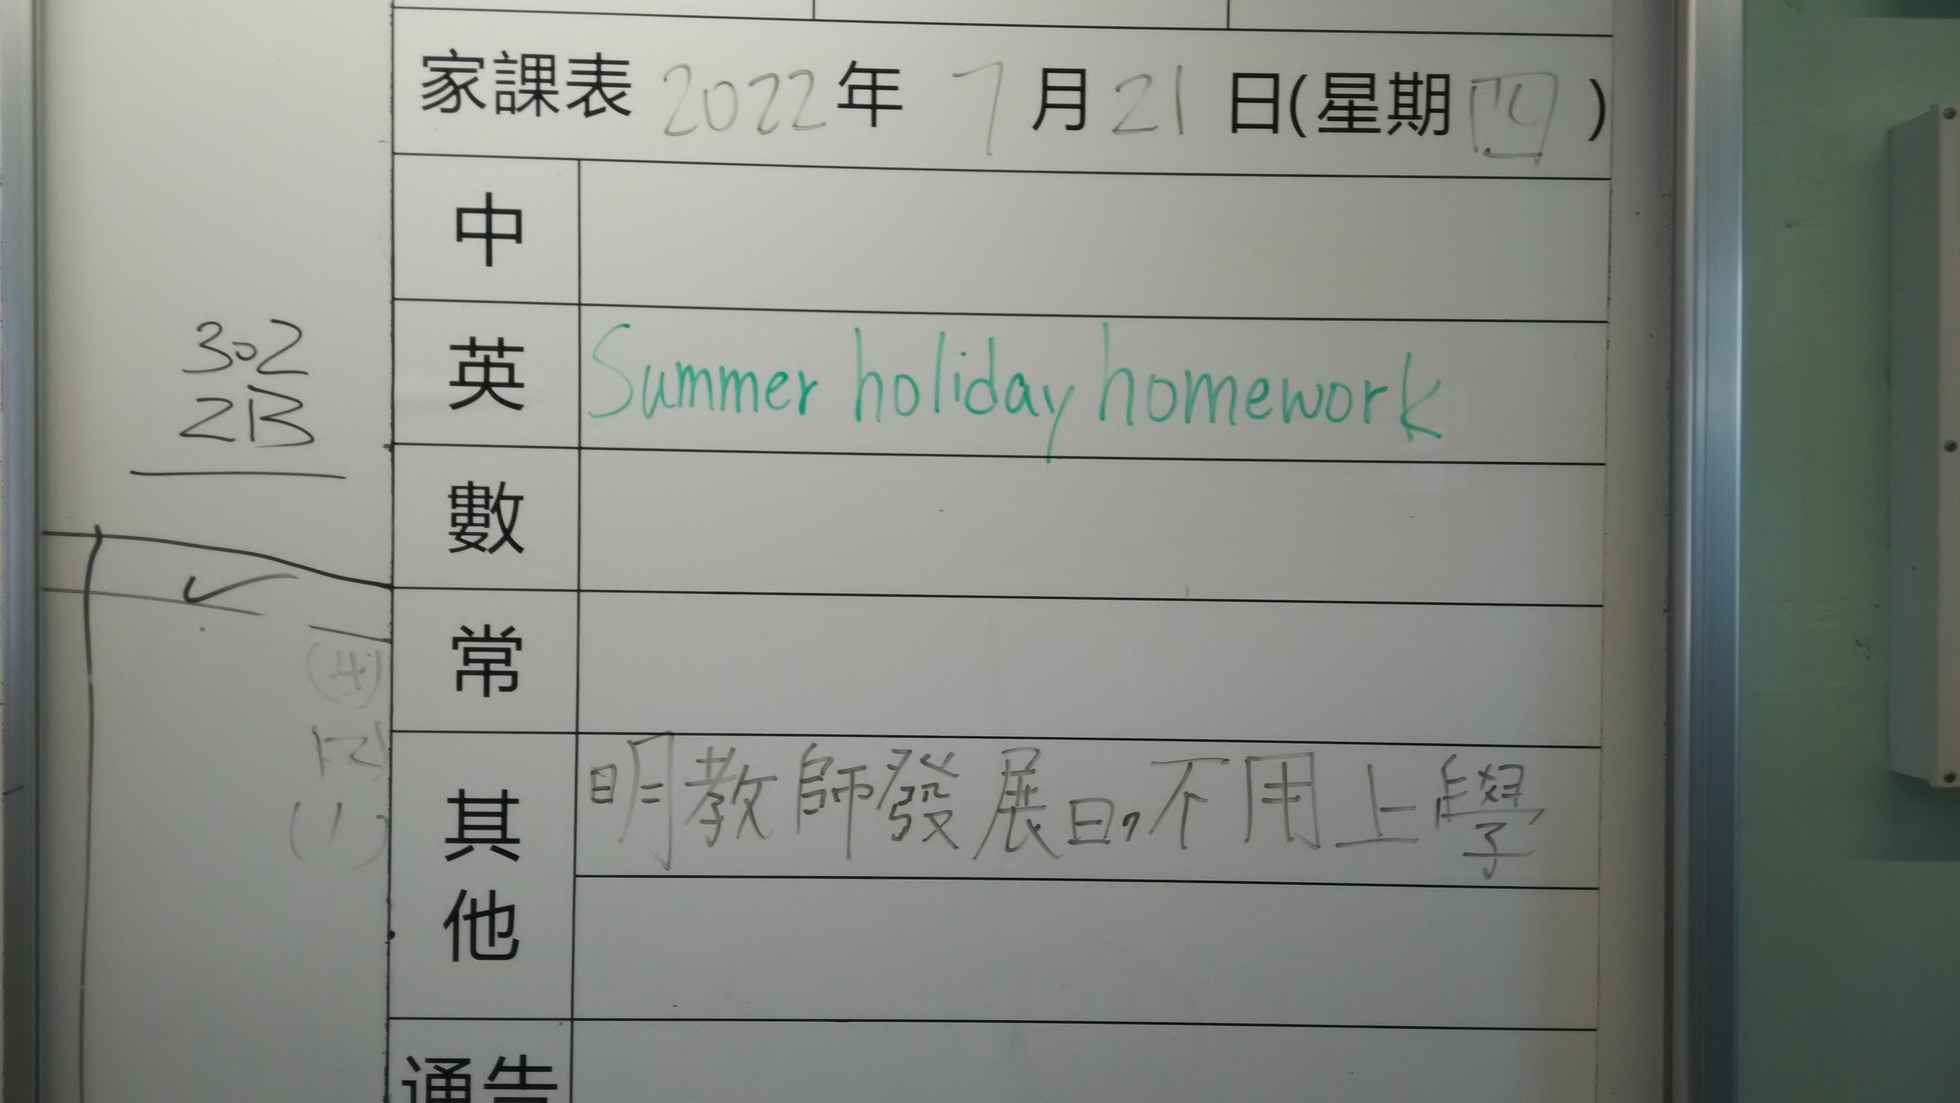 家課表 2022年 7月21日(星期四)
302
2B
中
英 Summer holiday homework
數
常
其他 明教師發展日,不用上學
通告